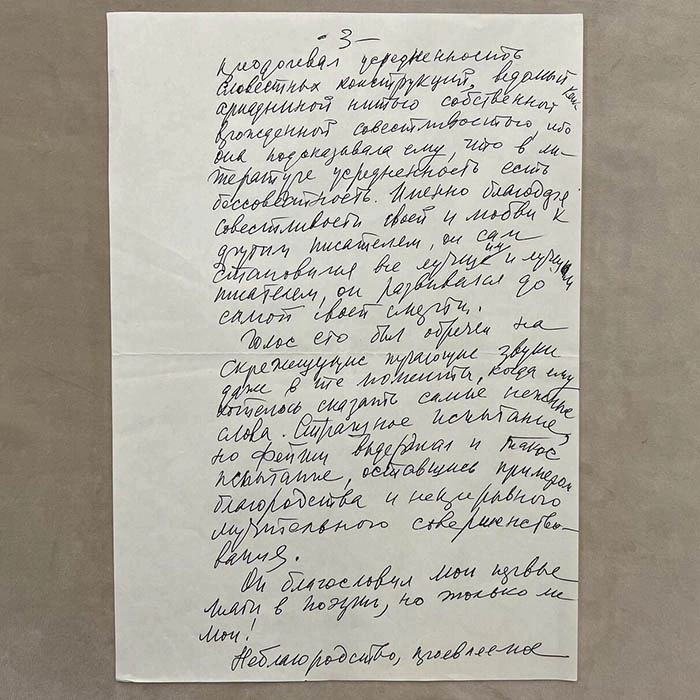 - 3 -
преодолевал усредненность
словестных конструкций, ведомый
ариадниной нитью собственной
врожденной совестливостью, ибо
она подсказывала ему, что в ли-
тературе усредненность есть
бессовестность. Именно благодаря
совестливости своей и любви к
другим писателям, он сам
становился все лучшим и лучшим
писателем, он развивался до
самой своей смерти.
Голос его был обречен на
скрежещущие пугающие звуки
даже в те моменты, когда ему
хотелось сказать самые нежные
слова. Страшное испытание,
но Фейгин выдержал и такое
испытание, оставшись примером
благородства и непрерывного
мучительного совершенство-
вания.
Он благословил мои первые
шаги в поэзии, но только ли
мои!
Неблагородство,